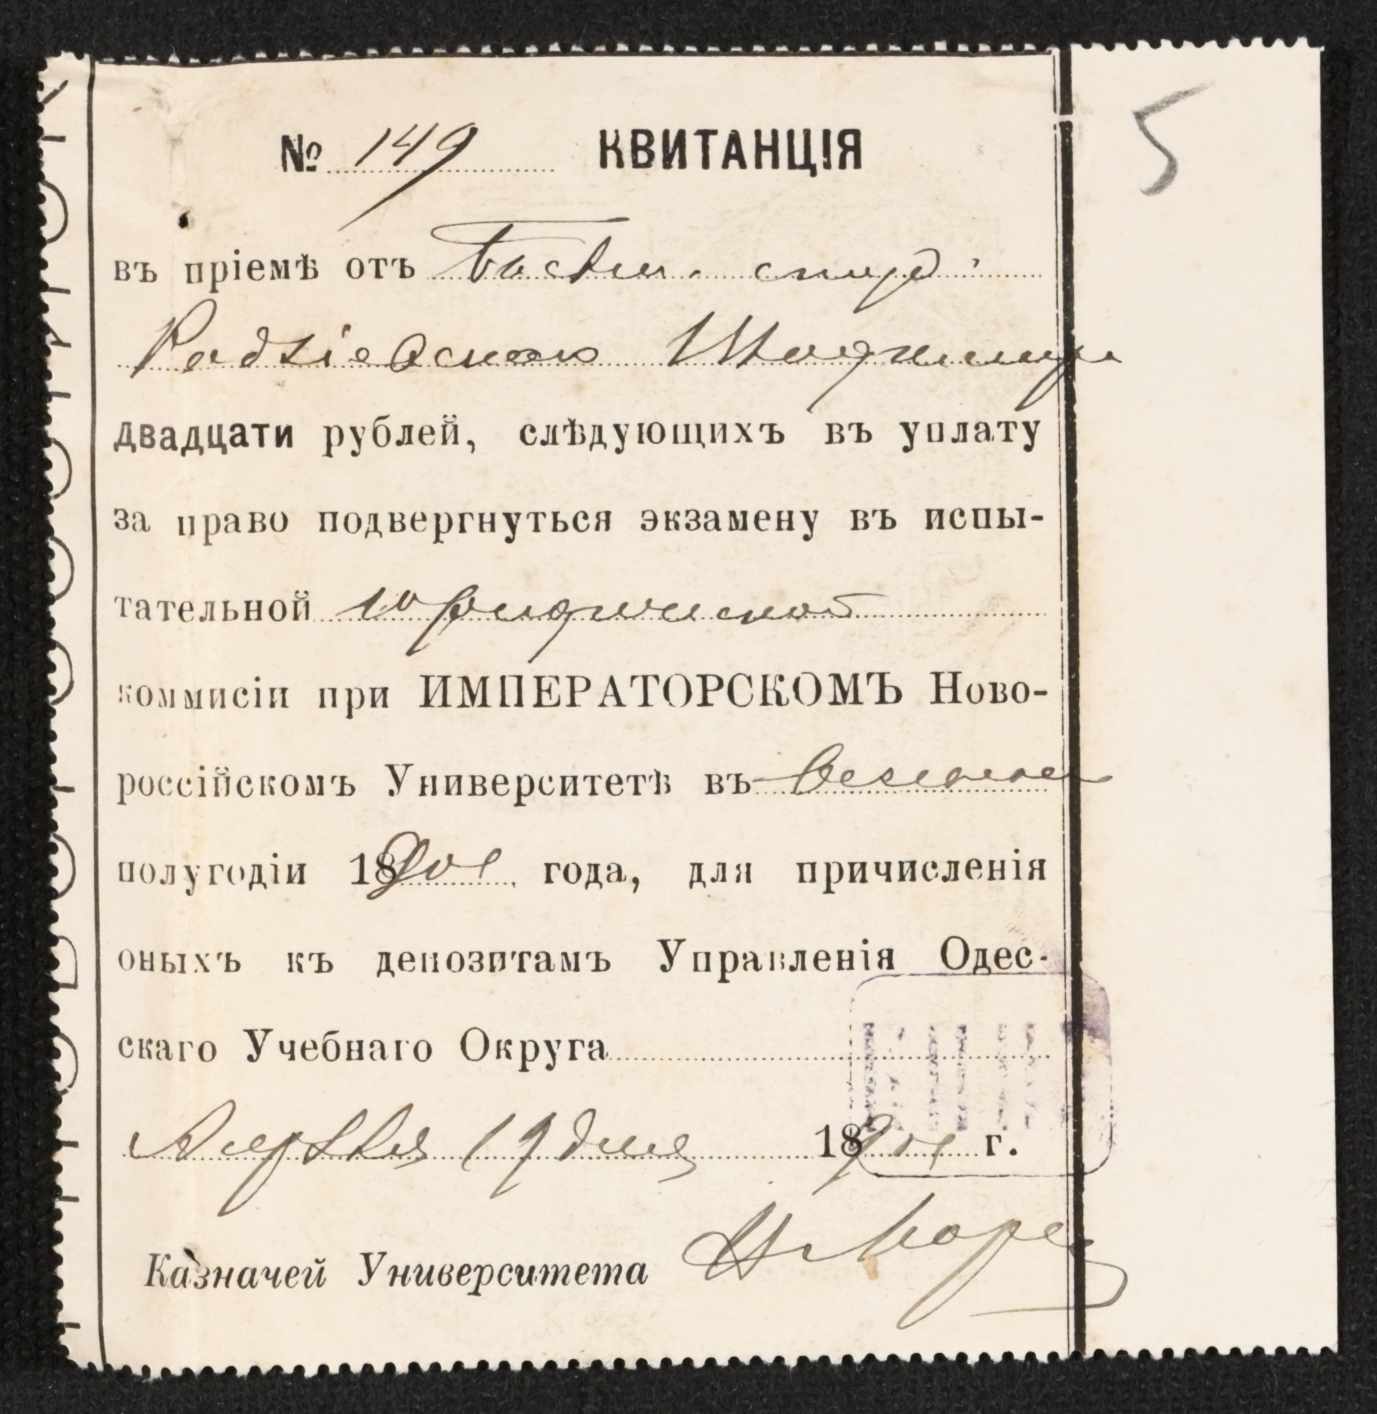 5
№ 149 КВИТАНЦІЯ
въ пріемѣ отъ студ.
двадцати рублей, слѣдующихъ въ уплату
за право подвергнуться экзамену въ испы-
тательной юридической
коммисіи при ИМПЕРАТОРСКОМЪ Ново-
россійскомъ Университетѣ въ
полугодіи 18901 года, для причисленія
оныхъ къ депозитамъ Управленія Одес-
скаго Учебнаго Округа
Апрѣля 19 дня 18901 г.
Казначей Университета